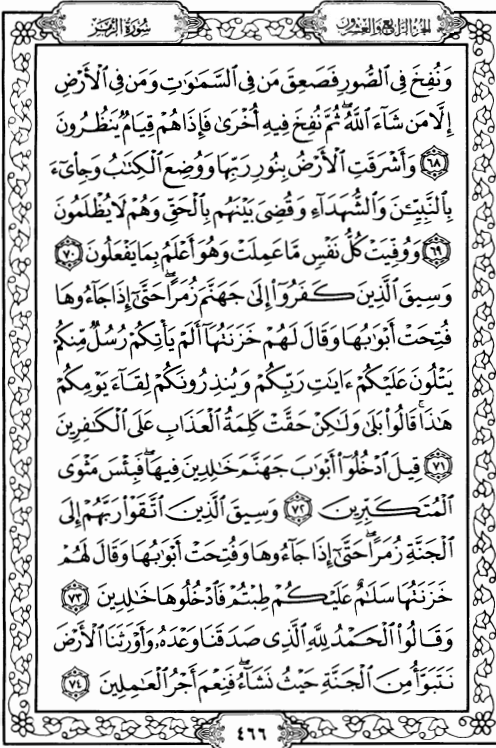 الجزء الرابع والعشرون
سورة الزمر
وَنُفِخَ فِى ٱلصُّورِ فَصَعِقَ مَن فِى ٱلسَّمَٰوَٰتِ وَمَن فِى ٱلْأَرْضِ
إِلَّا مَن شَآءَ ٱللَّهُ ۖ ثُمَّ نُفِخَ فِيهِ أُخْرَىٰ فَإِذَا هُمْ قِيَامٌ يَنظُرُونَ
٦٨ وَأَشْرَقَتِ ٱلْأَرْضُ بِنُورِ رَبِّهَا وَوُضِعَ ٱلْكِتَٰبُ وَجِا۟ىٓءَ
بِٱلنَّبِيِّۦنَ وَٱلشُّهَدَآءِ وَقُضِىَ بَيْنَهُم بِٱلْحَقِّ وَهُمْ لَا يُظْلَمُونَ
٦٩ وَوُفِّيَتْ كُلُّ نَفْسٍ مَّا عَمِلَتْ وَهُوَ أَعْلَمُ بِمَا يَفْعَلُونَ ٧٠
وَسِيقَ ٱلَّذِينَ كَفَرُوٓا۟ إِلَىٰ جَهَنَّمَ زُمَرًا ۖ حَتَّىٰٓ إِذَا جَآءُوهَا
فُتِحَتْ أَبْوَٰبُهَا وَقَالَ لَهُمْ خَزَنَتُهَآ أَلَمْ يَأْتِكُمْ رُسُلٌ مِّنكُمْ
يَتْلُونَ عَلَيْكُمْ ءَايَٰتِ رَبِّكُمْ وَيُنذِرُونَكُمْ لِقَآءَ يَوْمِكُمْ
هَٰذَا ۚ قَالُوا۟ بَلَىٰ وَلَٰكِنْ حَقَّتْ كَلِمَةُ ٱلْعَذَابِ عَلَى ٱلْكَٰفِرِينَ
٧١ قِيلَ ٱدْخُلُوٓا۟ أَبْوَٰبَ جَهَنَّمَ خَٰلِدِينَ فِيهَا ۖ فَبِئْسَ مَثْوَى
ٱلْمُتَكَبِّرِينَ ٧٢ وَسِيقَ ٱلَّذِينَ ٱتَّقَوْا۟ رَبَّهُمْ إِلَى
ٱلْجَنَّةِ زُمَرًا ۖ حَتَّىٰٓ إِذَا جَآءُوهَا وَفُتِحَتْ أَبْوَٰبُهَا وَقَالَ لَهُمْ
خَزَنَتُهَا سَلَٰمٌ عَلَيْكُمْ طِبْتُمْ فَٱدْخُلُوهَا خَٰلِدِينَ ٧٣
وَقَالُوا۟ ٱلْحَمْدُ لِلَّهِ ٱلَّذِى صَدَقَنَا وَعْدَهُۥ وَأَوْرَثَنَا ٱلْأَرْضَ
نَتَبَوَّأُ مِنَ ٱلْجَنَّةِ حَيْثُ نَشَآءُ ۖ فَنِعْمَ أَجْرُ ٱلْعَٰمِلِينَ ٧٤
٤٦٦